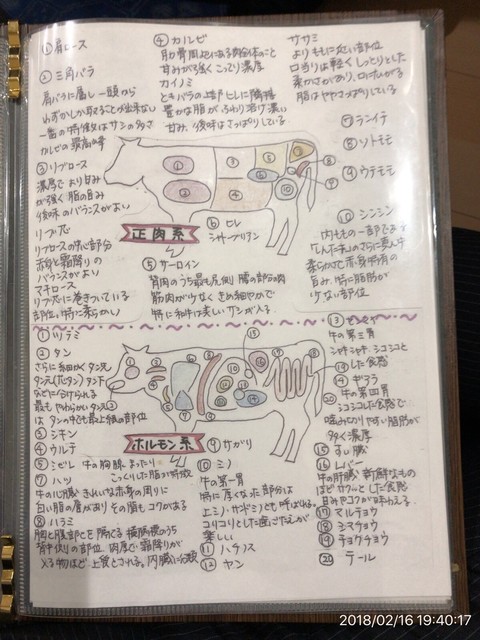 ① 肩ロース
② 三角バラ
肩バラに属し一頭から
わずかしか取ることが出来ない
一番の特徴はサシの多さ
カルビの最高峰
③ リブロース
濃厚でより甘み
が強く脂の旨み
後味のバランスがよい
リブ芯
リブロースの中心部分
赤身と霜降りの
バランスがよい
マキロース
リブ芯に巻きついている
部位、特に柔らかい
④ カルビ
肋骨周辺にある肉全体のこと
甘みが強くこってり濃厚
カイノミ
ともバラの上部ヒレに隣接
豊かな脂がふわり溶け濃い
甘み、後味はさっぱりしている
ササミ
よりももに近い部位
口当りは軽くしっとりした
柔かさがあり、口に広がる
脂はややさっぱりしている
⑦ ランイチ
⑧ ソトモモ
⑨ ウチモモ
⑩ シンシン
内ももの一部である
「しんたま」のさらに真ん中
柔らかさで赤身特有の
旨み、特に脂肪が
少ない部位
正肉系
⑥ ヒレ
シャトーブリアン
⑤ サーロイン
背肉のうち最も尻側 腰の部分の肉
筋肉が少なく きめ細やかで
特に和牛は美しいサシが入る
① ツラミ
② タン
さらに細かく タン元
タン先 タン下
などに分けられる
最もやわらかいタン元
はタンの中でも最上級の部位
③ シキン
④ ウルテ
⑤ シビレ 牛の胸腺 まったり
こっくりした脂が特徴
⑦ ハツ
牛の心臓 きれいな赤身の周りに
白い脂の層があり その脂もコクがある
⑧ ハラミ
胸と腹部を隔てる 横隔膜のうち
背中側の部位 肉厚で霜降りが
入る物ほど上質とされる。内臓に分類
ホルモン系
⑨ サガリ
⑩ ミノ
牛の第一胃
特に厚くなった部分は
上ミノ・サンドミノとも呼ばれる
コリコリとした歯ごたえが
楽しい
⑪ ハチノス
⑫ ヤン
⑬ センマイ
牛の第三胃
シャキシャキ・シコシコと
した食感
⑭ ギアラ
牛の第四胃
シコシコした食感で
噛みごたえやすい脂肪が
多く濃厚
⑮ すい臓
⑯ レバー
牛の肝臓 新鮮なもの
ほどサクッとした食感
甘みやコクが味わえる
⑰ マルチョウ
⑱ シマチョウ
⑲ チョクチョウ
⑳ テール
2018/02/16 19:40:17